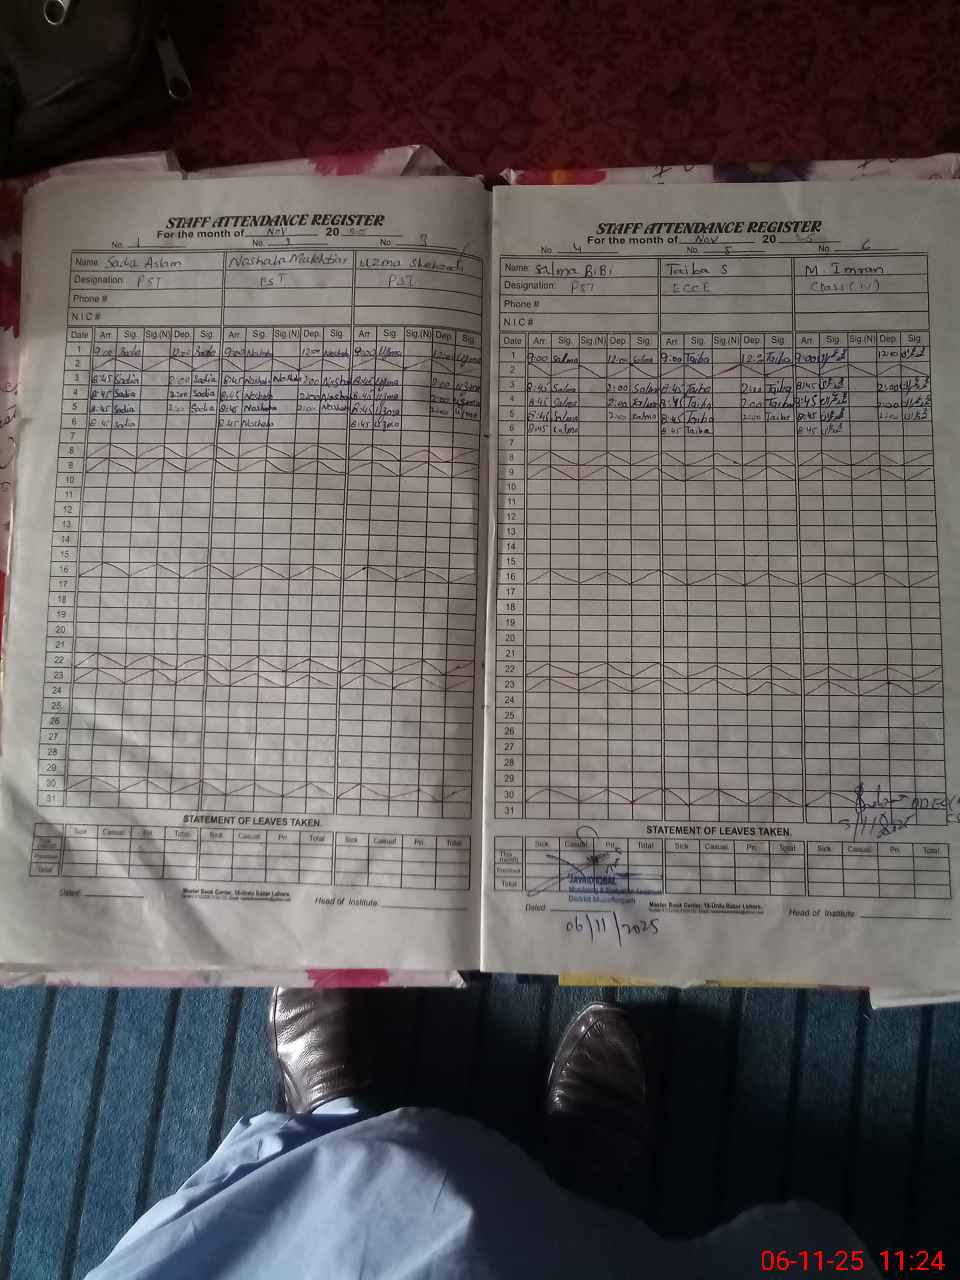 STAFF ATTENDANCE REGISTER
For the month of Nov 20 25
No. 1 No. No. 3
Name: Sadia Aslam Nosheba Mukhtiar Uzma Shehzadi
Designation: PST PST PST
Phone #
N.I.C #
Date Arr. Sig. Sig.(N) Dep. Sig. Arr. Sig. Sig.(N) Dep. Sig. Arr. Sig. Sig.(N) Dep. Sig.
1 9:00 Sadia 12:00 Sadia 9:00 Nosheba 12:00 Nosheba 9:00 Uzma 12:00 Uzma
2
3 8:45 Sadia 2:00 Sadia 8:45 Nosheba Nosheba 2:00 Nosheba 8:45 Uzma 2:00 Uzma
4 8:45 Sadia 2:00 Sadia 8:45 Nosheba 2:00 Nosheba 8:45 Uzma 2:00 Uzma
5 8:45 Sadia 2:00 Sadia 8:45 Nosheba 2:00 Nosheba 8:45 Uzma 2:00 Uzma
6 8:45 Sadia 8:45 Nosheba 8:45 Uzma
7
8
9
10
11
12
13
14
15
16
17
18
19
20
21
22
23
24
25
26
27
28
29
30
31
STATEMENT OF LEAVES TAKEN.
Sick Casual Pri. Total Sick Casual Pri. Total Sick Casual Pri. Total
This month
Previous
Total
Dated: Master Book Center, 18-Urdu Bazar Lahore. Head of Institute
STAFF ATTENDANCE REGISTER
For the month of Nov 20 25
No. 4 No. 5 No. 6
Name: Salma BiBi Taiba S M. Imran
Designation: PST ECCE Class (iv)
Phone #
N.I.C #
Date Arr. Sig. Sig.(N) Dep. Sig. Arr. Sig. Sig.(N) Dep. Sig. Arr. Sig. Sig.(N) Dep. Sig
1 9:00 Salma 12:00 Salma 9:00 Taiba Taiba 9:00 12:00
2
3 8:45 Salma 2:00 Salma 8:45 Taiba 2:00 Taiba 8:45 2:00
4 8:45 Salma 2:00 Salma 8:45 Taiba 2:00 Taiba 8:45 2:00
5 8:45 Salma 2:00 Salma 8:45 Taiba 2:00 Taiba 8:45 2:00
6 8:45 Salma 8:45 Taiba 8:45
7
8
9
10
11
12
13
14
15
16
17
18
19
20
21
22
23
24
25
26
27
28
29
30
31
STATEMENT OF LEAVES TAKEN.
Sick Casual Pri. Total Sick Casual Pri. Total Sick Casual Pri. Total
This month
Previous
Total
JAVAID IQBAL
Monitoring & Evaluation Assistant
District Muzaffargarh
Dated Master Book Center, 18-Urdu Bazar Lahore. Head of Institute
06/11/2025
06-11-25 11:24